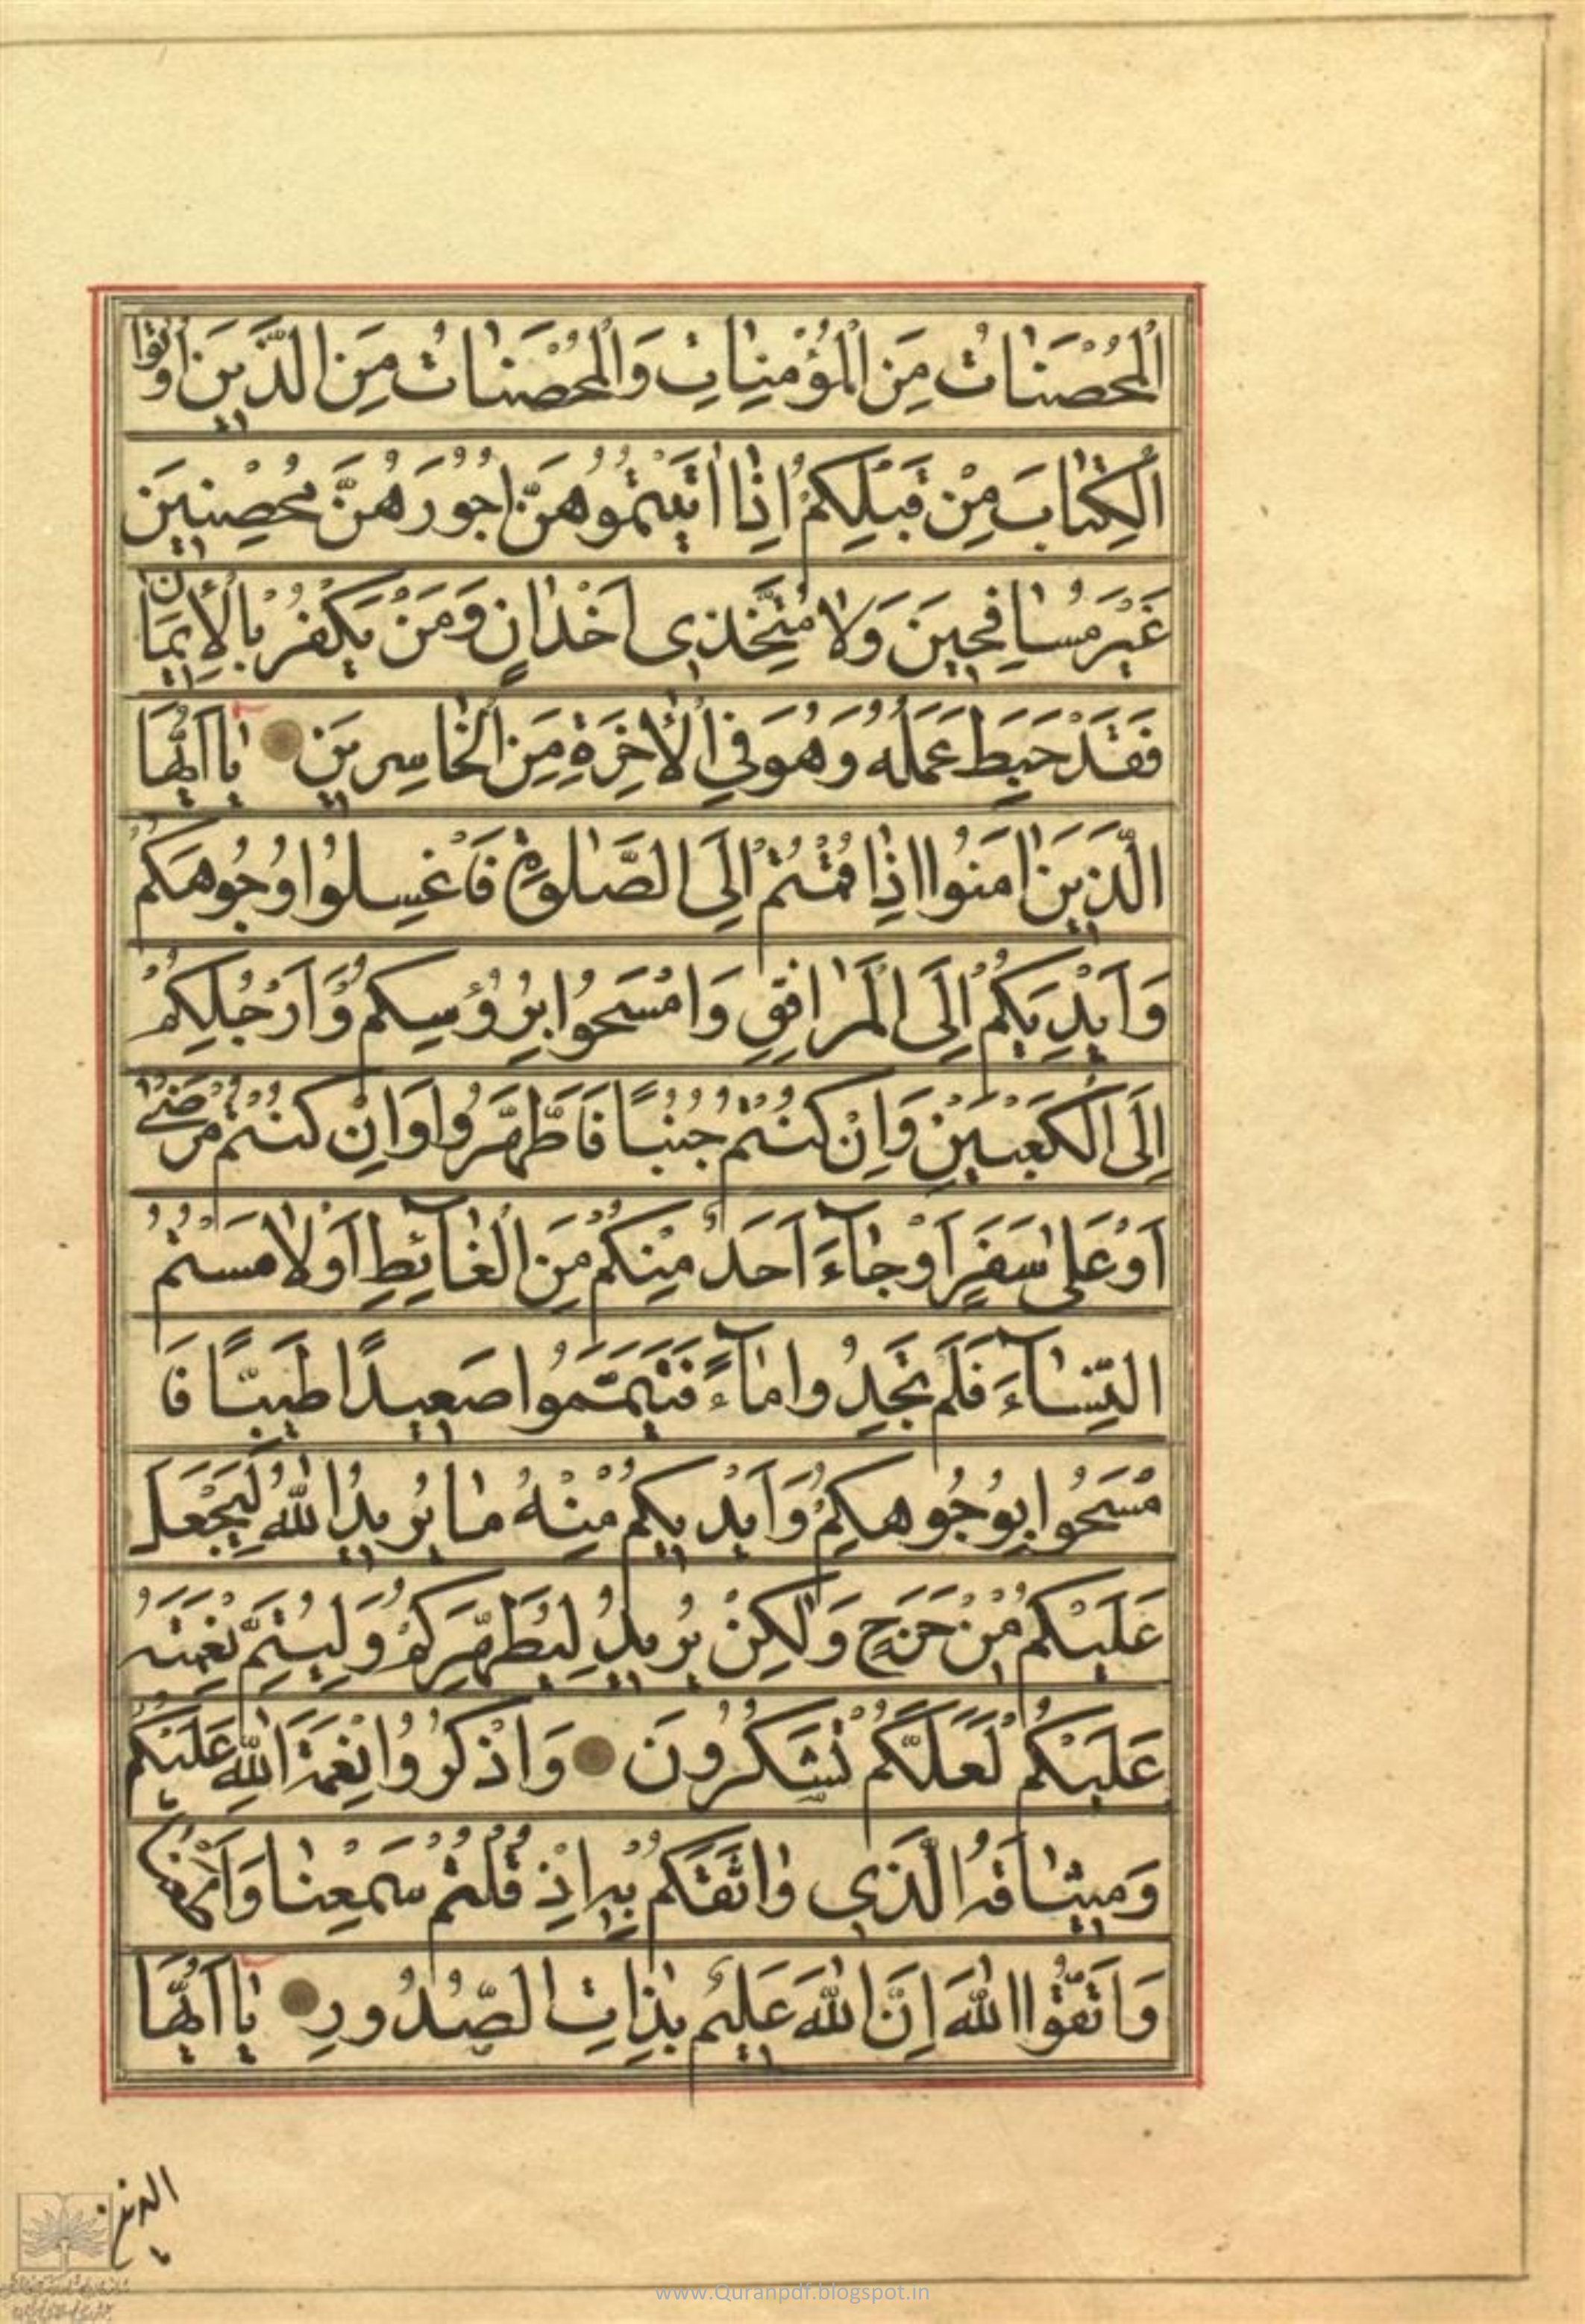 اَلْمُحْصَنٰاتُ مِنَ الْمُؤْمِنٰاتِ وَالْمُحْصَنٰاتُ مِنَ الَّذٖينَ اُوتُوا
الْكِتٰابَ مِنْ قَبْلِكُمْ اِذٰا اٰتَيْتُمُوهُنَّ اُجُورَهُنَّ مُحْصِنٖينَ
غَيْرَ مُسٰافِحٖينَ وَلاٰ مُتَّخِذٖى اَخْدٰانٍ وَمَنْ يَكْفُرْ بِالْاٖيمٰانِ
فَقَدْ حَبِطَ عَمَلُهُ وَهُوَ فِي الْاٰخِرَةِ مِنَ الْخٰاسِرٖينَ يٰا اَيُّهَا
الَّذٖينَ اٰمَنُوا اِذٰا قُمْتُمْ اِلَى الصَّلٰوةِ فَاغْسِلُوا وُجُوهَكُمْ
وَاَيْدِيَكُمْ اِلَى الْمَرٰافِقِ وَامْسَحُوا بِرُؤُسِكُمْ وَاَرْجُلِكُمْ
اِلَى الْكَعْبَيْنِ وَاِنْ كُنْتُمْ جُنُبًا فَاطَّهَّرُوا وَاِنْ كُنْتُمْ مَرْضٰى
اَوْ عَلٰى سَفَرٍ اَوْ جٰاۤءَ اَحَدٌ مِنْكُمْ مِنَ الْغٰاۤئِطِ اَوْ لاٰمَسْتُمُ
النِّسٰاۤءَ فَلَمْ تَجِدُوا مٰاۤءً فَتَيَمَّمُوا صَعٖيدًا طَيِّبًا فَا
مْسَحُوا بِوُجُوهِكُمْ وَاَيْدٖيكُمْ مِنْهُ مٰا يُرٖيدُ اللّٰهُ لِيَجْعَلَ
عَلَيْكُمْ مِنْ حَرَجٍ وَلٰكِنْ يُرٖيدُ لِيُطَهِّرَكُمْ وَلِيُتِمَّ نِعْمَتَهُ
عَلَيْكُمْ لَعَلَّكُمْ تَشْكُرُونَ وَاذْكُرُوا نِعْمَةَ اللّٰهِ عَلَيْكُمْ
وَمٖيثٰاقَهُ الَّذٖى وٰاثَقَكُمْ بِهِ اِذْ قُلْتُمْ سَمِعْنٰا وَاَطَعْنٰا
وَاتَّقُوا اللّٰهَ اِنَّ اللّٰهَ عَلٖيمٌ بِذٰاتِ الصُّدُورِ يٰا اَيُّهَا
الذين
www.Quranpdf.blogspot.in